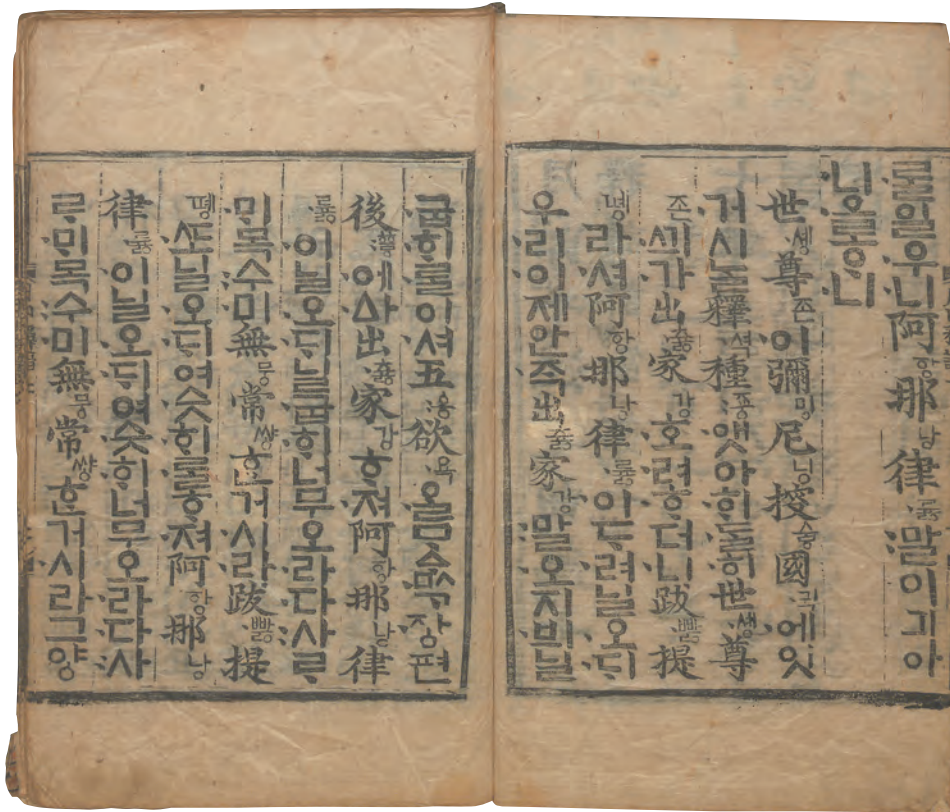 ᄅᆞᆯ일우니阿ᅙᅡᆼ那낭律륧말이긔아
니올ᄒᆞ니
世솅尊존이彌밍尼닝授쓩國귁에잇
거시ᄂᆞᆯ釋셕種죵앳아ᄒᆡᄃᆞᆯ히世솅尊
존ᄭᅴ가出츓家강호려ᄒᆞ더니跋빯提
뗑라셔阿ᅙᅡᆼ那낭律륧이ᄃᆞ려닐오ᄃᆡ
우리이제안ᄌᆞᆨ出츓家강말오지븨닐
굽ᄒᆡᄅᆞᆯ이셔五옹欲욕ᄋᆞᆯᄆᆞᅀᆞᆷᄭᆞ장편
後ᅘᅮᇢ에ᅀᅡ出츓家강ᄒᆞ져阿ᅙᅡᆼ那낭律
륧이닐오ᄃᆡ닐굽ᄒᆡ너무오라다사ᄅᆞ
ᄆᆡ목수미無뭉常쌍ᄒᆞᆫ거시라跋빯提
뗑ᄯᅩ닐오ᄃᆡ여슷ᄒᆡᄅᆞᆯᄒᆞ져阿ᅙᅡᆼ那낭
律륧이닐오ᄃᆡ여슷ᄒᆡ너무오라다사
ᄅᆞᄆᆡ목수미無뭉常쌍ᄒᆞᆫ거시라그양